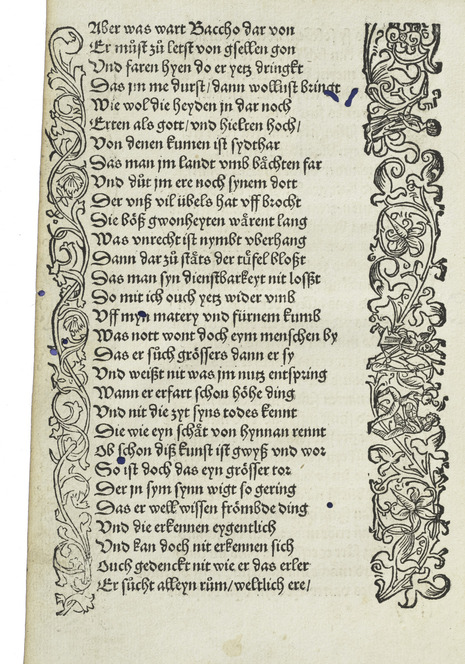 Aber was wart Baccho dar von
Er můst zů letst von gsellen gon
Vnd faren hyen do er yetz dringkt
Das jm me durst / dann wollust bringt
Wie wol die heyden jn dar noch
Erten als gott / vnd hielten hoch /
Von denen kumen ist sydthar
Das man jm landt vmb bächten far
Vnd důt jm ere noch synem dott
Der vnß vil übels hat vff brocht
Die böß gwonheyten wärent lang
Was vnrecht ist nymbt vberhang
Dann dar zů stäts der tüfel bloßt
Das man syn dienstbarkeyt nit loßßt
So mit ich ouch yetz wider vmb
Vff myn matery vnd fürnem kumb
Was nott wont doch eym menschen by
Das er sůch grössers dann er sy
Vnd weißt nit was jm nutz entspring
Wann er erfart schon höhe ding
Vnd nit die zyt syns todes kennt
Die wie eyn schät von hynnan rennt
Ob schon diß kunst ist gwyß vnd wor
So ist doch das eyn grösser tor
Der jn sym synn wigt so gering
Das er well wissen frömbde ding
Vnd die erkennen eygentlich
Vnd kan doch nit erkennen sich
Ouch gedenckt nit wie er das erler
Er sůcht alleyn rům / weltlich ere /